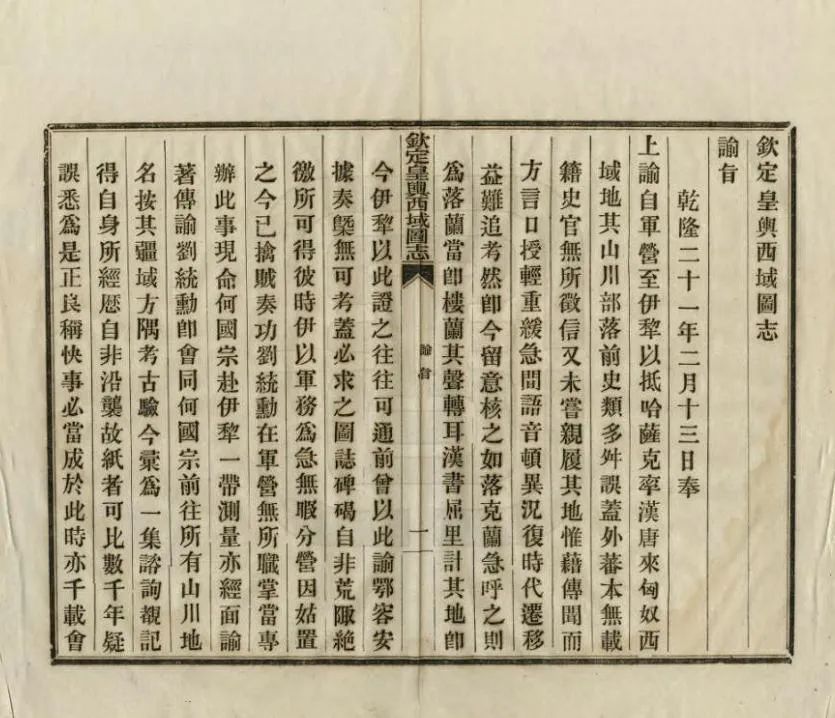 欽定皇輿西域圖志
諭旨
乾隆二十一年二月十三日奉
上諭自軍營至伊犂以抵哈薩克率漢唐來匈奴西
域地其山川部落前史類多舛誤蓋外蕃本無載
籍史官無所徵信又未嘗親履其地惟藉傳聞而
方言口授輕重緩急間語音頓異況復時代遷移
益難追考然卽今留意核之如落克蘭急呼之則
爲落蘭當卽樓蘭其聲轉耳漢書屈里計其地卽
欽定皇輿西域圖志
諭旨
一
今伊犂以此證之往往可通前曾以此諭鄂容安
據奏槩無可考蓋必求之圖誌碑碣自非荒陬絶
徼所可得彼時伊以軍務爲急無暇分營因姑置
之今已擒賊奏功劉統勳在軍營無所職掌當專
辦此事現命何國宗赴伊犂一帶測量亦經面諭
著傳諭劉統勳卽會同何國宗前往所有山川地
名按其疆域方隅考古驗今彚爲一集諮詢覩記
得自身所經歷自非沿襲故紙者可比數千年疑
誤悉爲是正良稱快事必當成於此時亦千載會